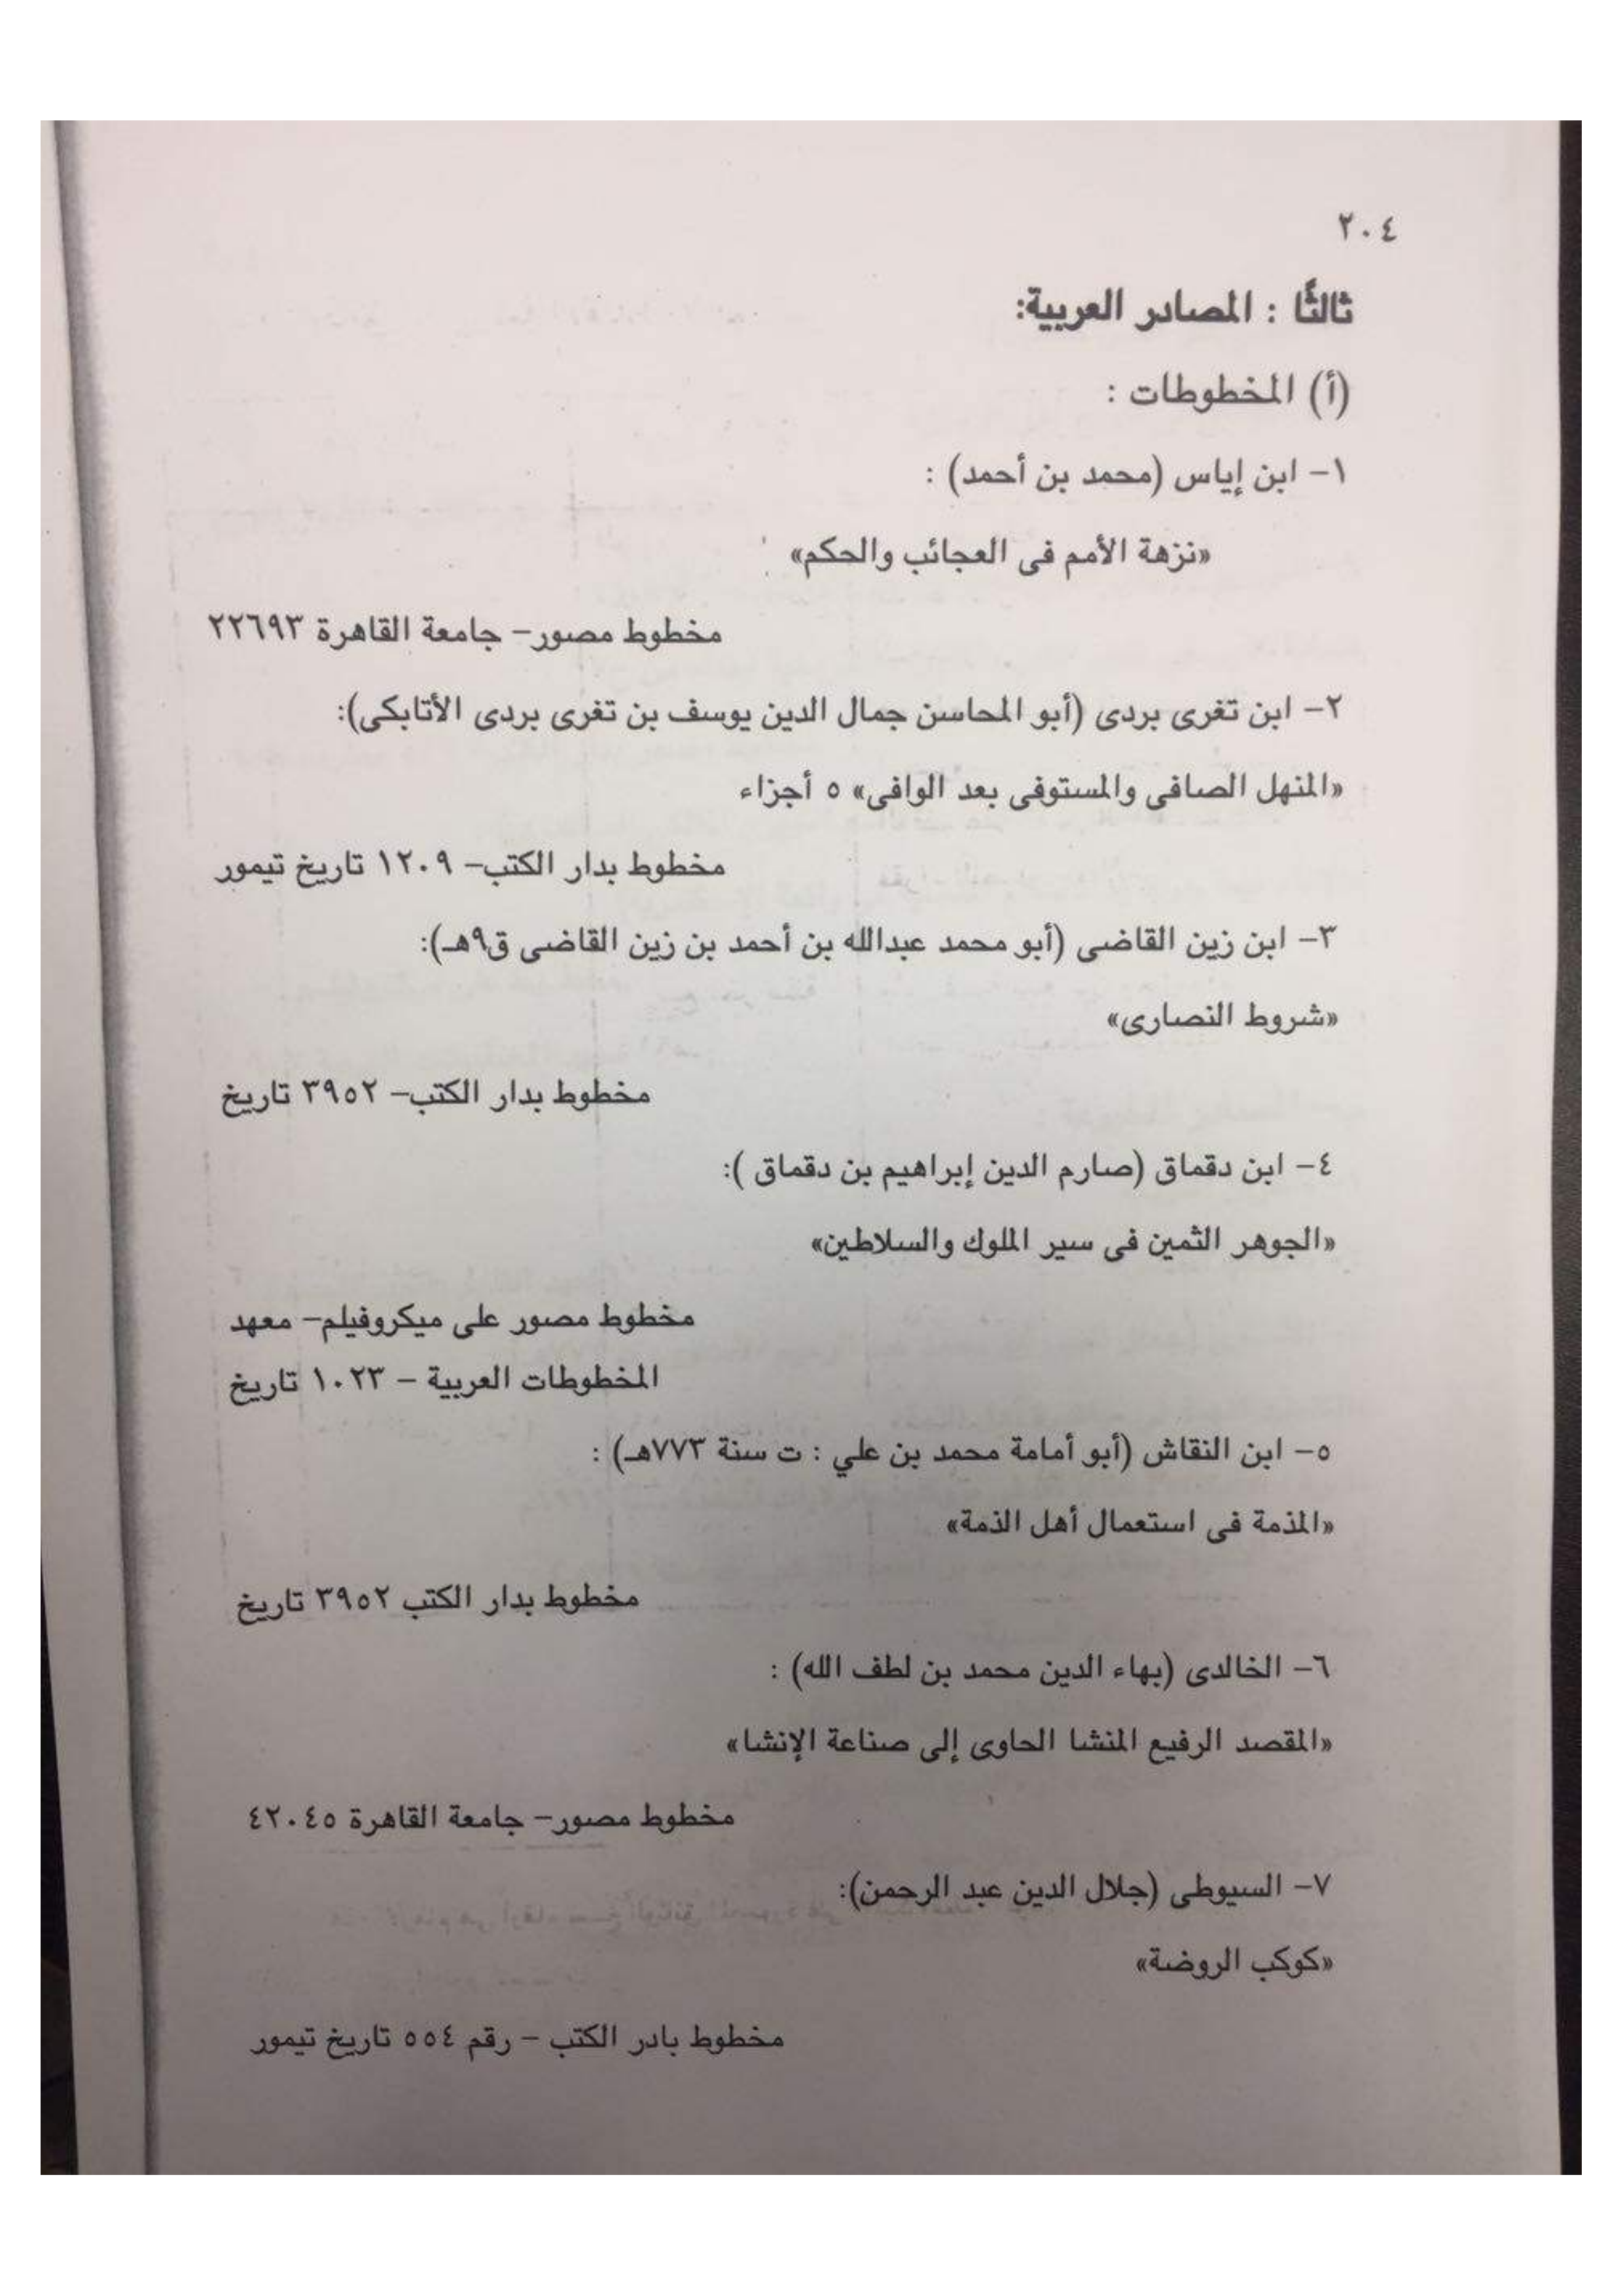 ٢٠٤
ثالثًا : المصادر العربية:
(أ) المخطوطات :
١- ابن إياس (محمد بن أحمد) :
«نزهة الأمم فى العجائب والحكم»
مخطوط مصور- جامعة القاهرة ٢٢٦٩٣
٢- ابن تغرى بردى (أبو المحاسن جمال الدين يوسف بن تغرى بردى الأتابكى):
«المنهل الصافى والمستوفى بعد الوافى» ٥ أجزاء
مخطوط بدار الكتب- ١٢٠٩ تاريخ تيمور
٣- ابن زين القاضى (أبو محمد عبدالله بن أحمد بن زين القاضى ق٩هـ):
«شروط النصارى»
مخطوط بدار الكتب- ٣٩٥٢ تاريخ
٤- ابن دقماق (صارم الدين إبراهيم بن دقماق ):
«الجوهر الثمين فى سير الملوك والسلاطين»
مخطوط مصور على ميكروفيلم- معهد
المخطوطات العربية - ١٠٢٣ تاريخ
٥- ابن النقاش (أبو أمامة محمد بن علي : ت سنة ٧٧٣هـ) :
«المذمة فى استعمال أهل الذمة»
مخطوط بدار الكتب ٣٩٥٢ تاريخ
٦- الخالدى (بهاء الدين محمد بن لطف الله) :
«المقصد الرفيع المنشا الحاوى إلى صناعة الإنشا»
مخطوط مصور- جامعة القاهرة ٤٢٠٤٥
٧- السيوطى (جلال الدين عبد الرحمن):
«كوكب الروضة»
مخطوط بادر الكتب - رقم ٥٥٤ تاريخ تيمور